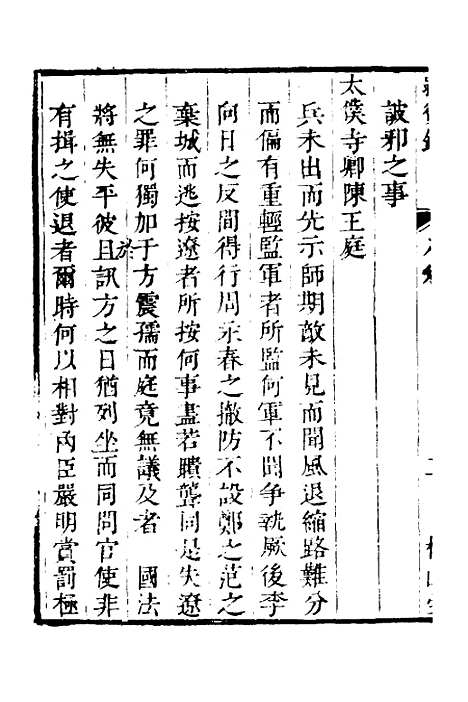 詖邪之事
太僕寺卿陳王庭
兵未出而先示師期敵未見而聞風退縮路難分
而偏有重輕監軍者所監何軍不聞爭執厥後李
向日之反間得行周永春之撤防不設鄭之范之
棄城而逃按遼者所按何事盡若聵聾同是失遼
之罪何獨加于方震孺而庭竟無議及者 國法
將無失平彼且訊方之日猶列坐而同問官使非
於
有揖之使退者爾時何以相對內臣嚴明賞罰極